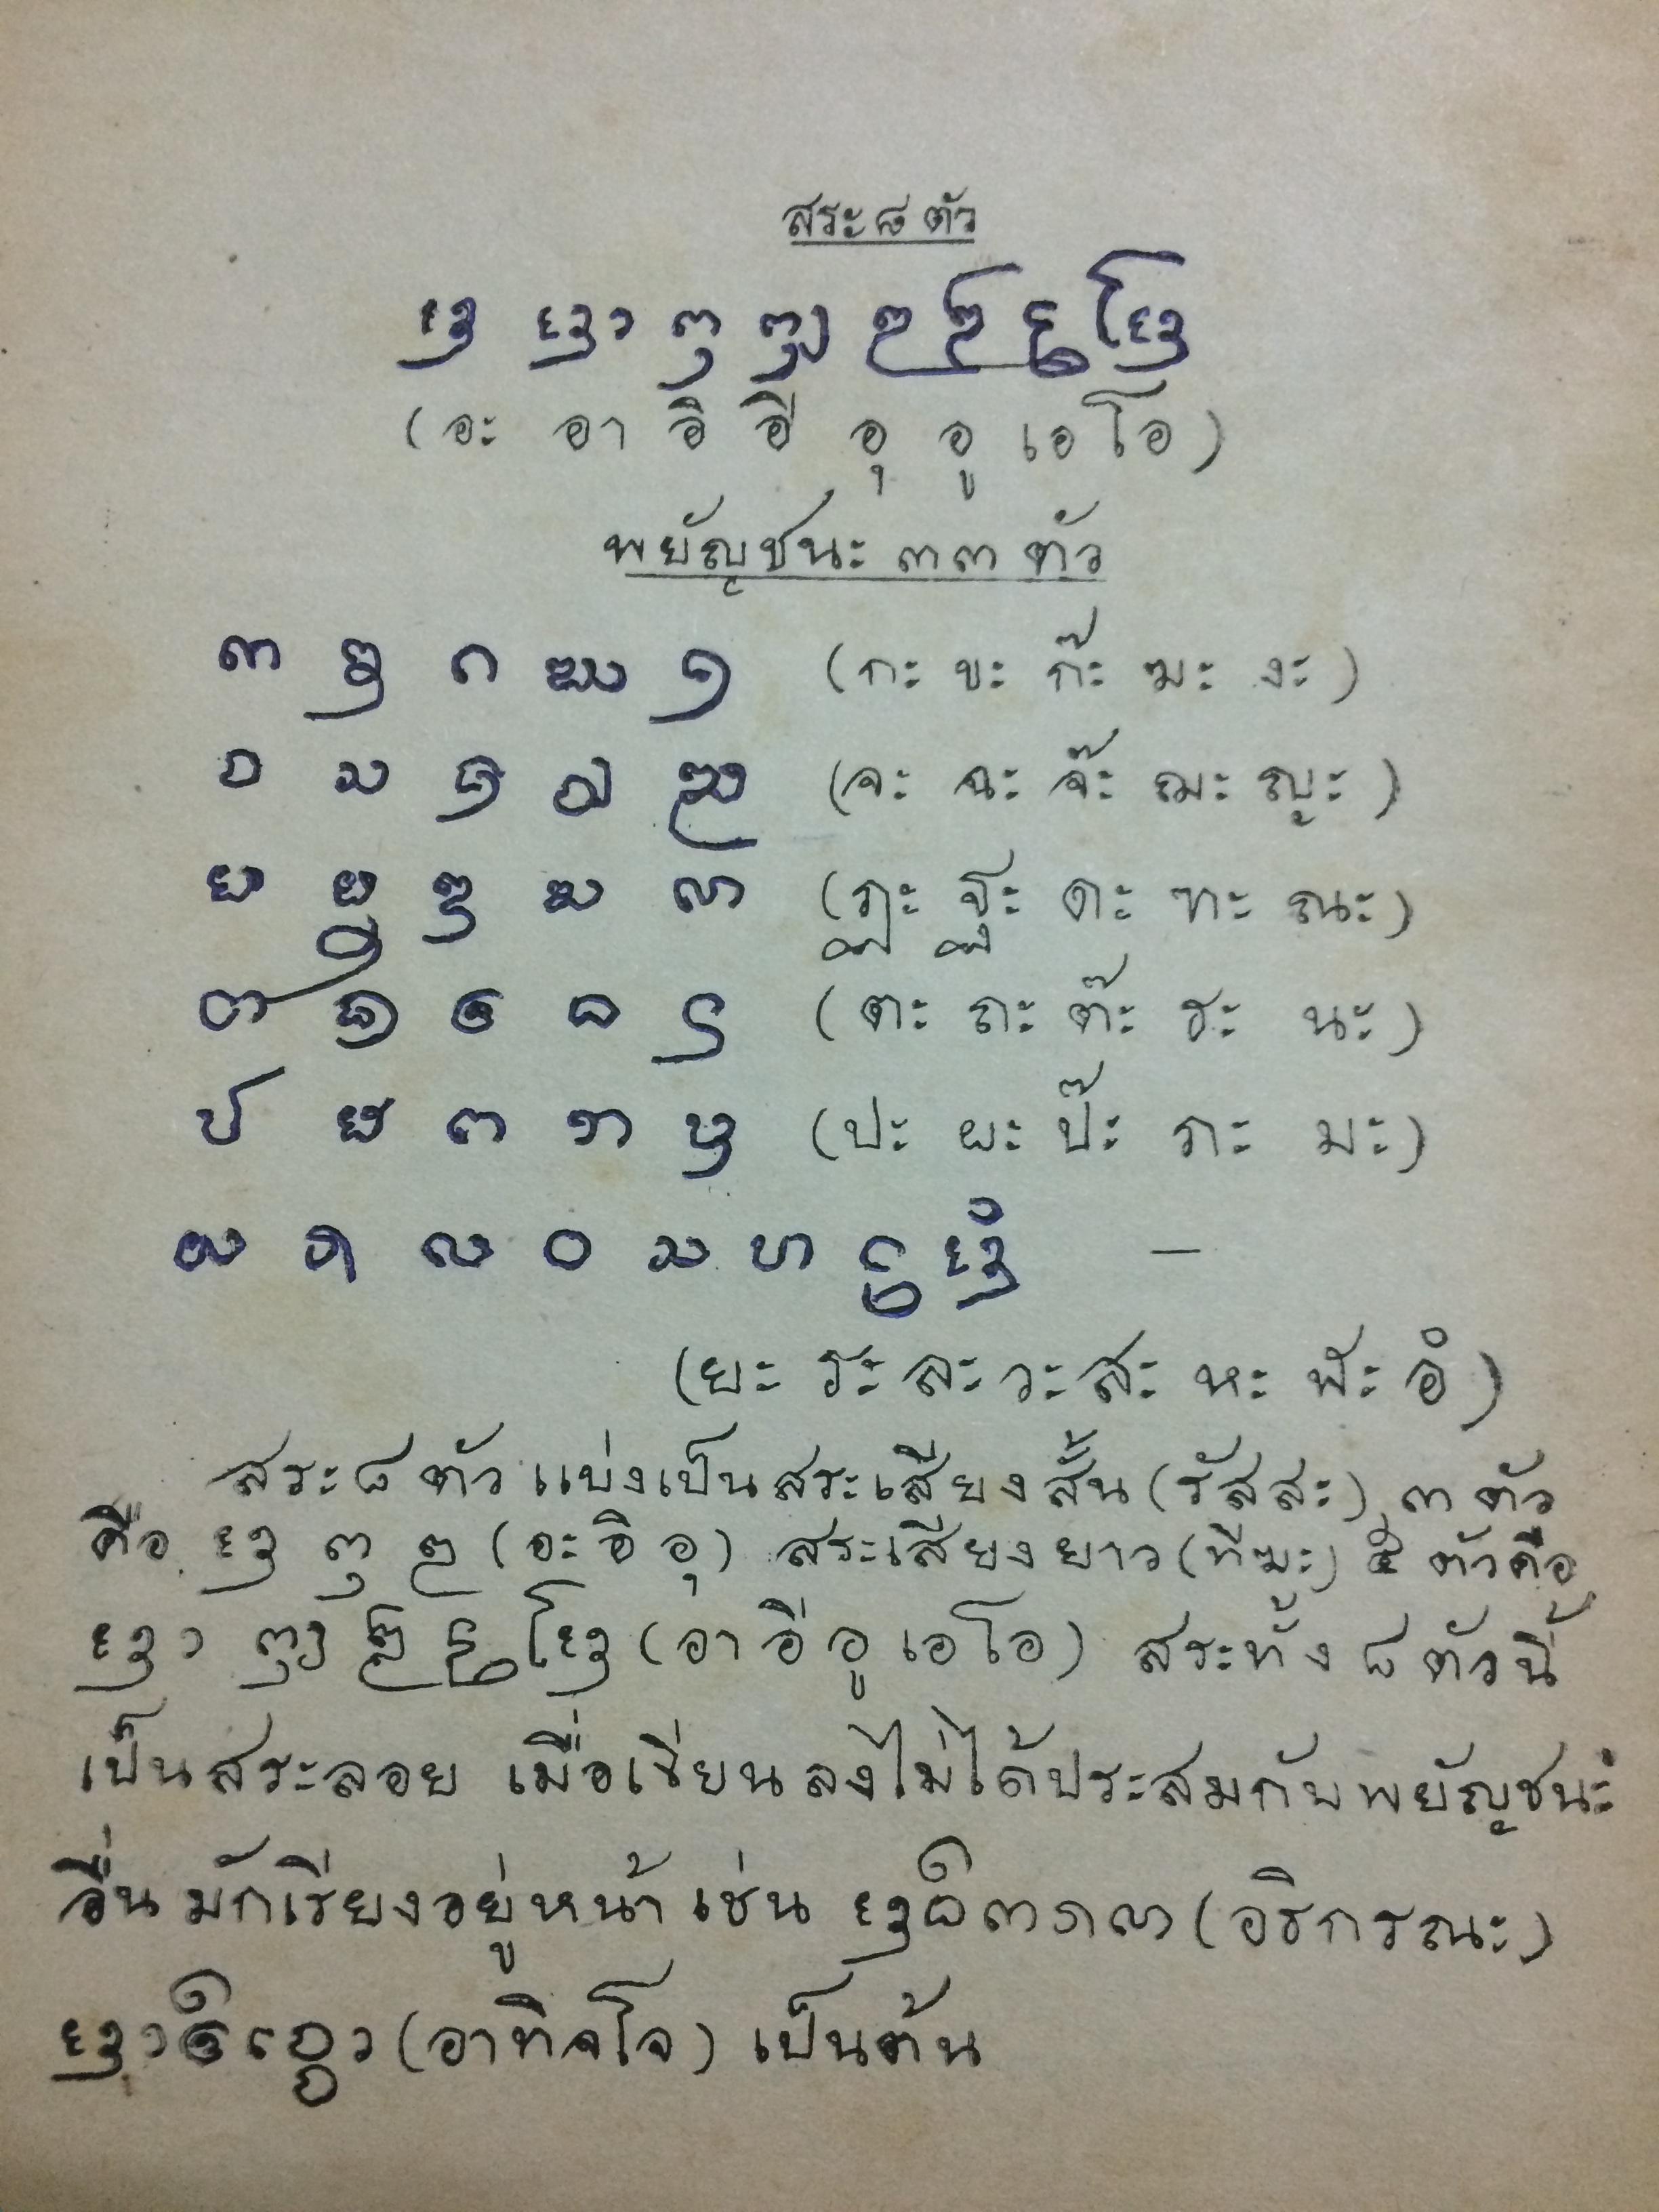 สระ ๘ ตัว
ᩋ ᩋᩣ ᩍ ᩎ ᩏ ᩐ ᩑ ᩒ
(อะ อา อิ อี อุ อู เอ โอ)
พยัญชนะ ๓๓ ตัว
ᨠ ᨡ ᨣ ᨥ ᨦ (กะ ขะ ก๊ะ ฆะ งะ)
ᨧ ᨨ ᨩ ᨫ ᨬ (จะ ฉะ จ๊ะ ฌะ ญะ)
ᨭ ᨮ ᨯ ᨰ ᨱ (ฏะ ฐะ ดะ ฑะ ณะ)
ᨲ ᨳ ᨴ ᨵ ᨶ (ตะ ถะ ต๊ะ ธะ นะ)
ᨸ ᨹ ᨻ ᨽ ᨾ (ปะ ผะ ป๊ะ ภะ มะ)
ᨿ ᩁ ᩃ ᩅ ᩈ ᩉ ᩊ ᩋᩴ –
(ยะ ระ ละ วะ สะ หะ ฬะ อํ)
สระ ๘ ตัว แบ่งเป็นสระเสียงสั้น (รัสสะ) ๓ ตัว
คือ ᩋ ᩍ ᩏ (อะ อิ อุ) สระเสียงยาว (ทีฆะ) ๕ ตัวคือ
ᩋᩣ ᩎ ᩐ ᩑ ᩒ (อา อี อู เอ โอ) สระทั้ง ๘ ตัวนี้
เป็นสระลอย เมื่อเขียนลงไม่ได้ประสมกับพยัญชนะ
อื่น มักเรียงอยู่หน้า เช่น ᩋᨵᩥᨠᩁᨱ (อธิกรณะ)
ᩋᩣᨴᩥᨧ᩠ᨧᩮᩣ (อาทิจโจ) เป็นต้น